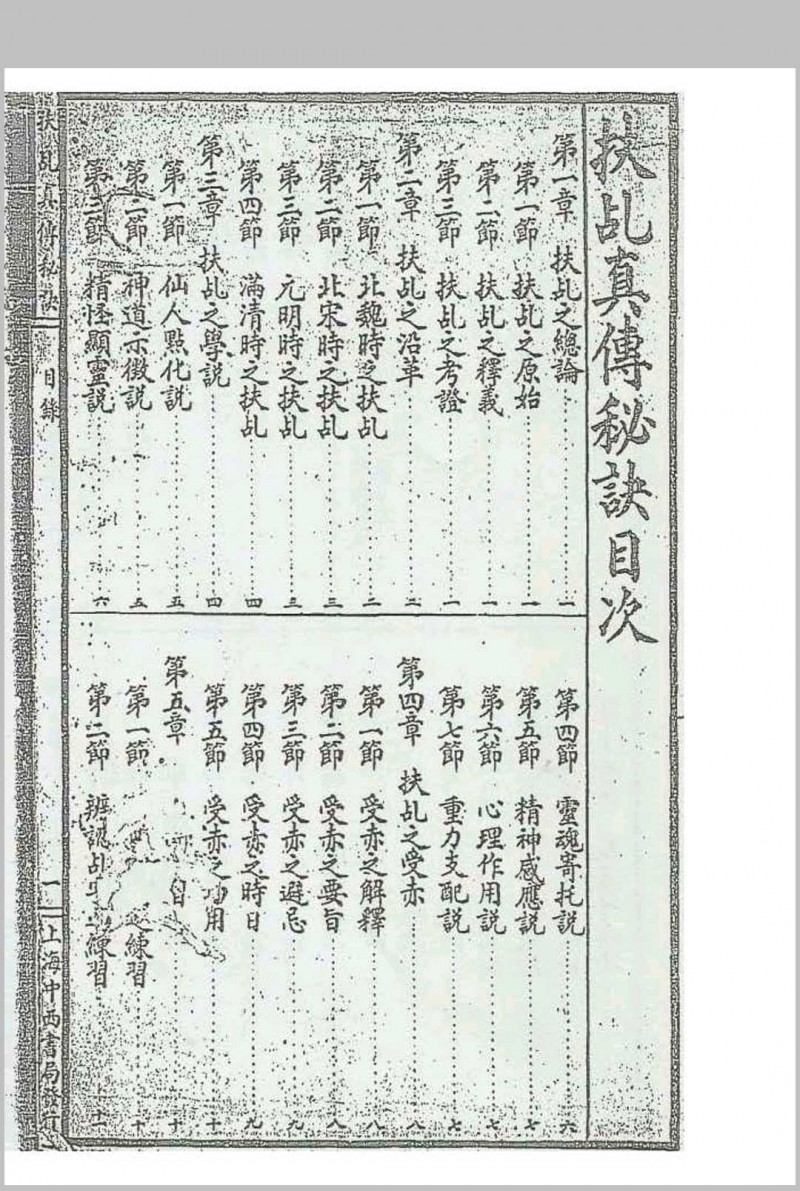 扶乩真傳秘訣目次
第一章 扶乩之總論 一
第一節 扶乩之原始 一
第二節 扶乩之釋義 一
第三節 扶乩之考證 一
第二章 扶乩之沿革 二
第一節 北魏時之扶乩 二
第二節 北宋時之扶乩 三
第三節 元明時之扶乩 三
第四節 滿清時之扶乩 四
第三章 扶乩之學說 四
第一節 仙人點化說 五
第二節 神道示徵說 五
第三節 精怪顯靈說 六
第四節 靈魂寄托說 六
第五節 精神感應說 七
第六節 心理作用說 七
第七節 重力支配說 七
第四章 扶乩之受赤 八
第一節 受赤之解釋 八
第二節 受赤之要旨 八
第三節 受赤之避忌 九
第四節 受赤之時日 九
第五節 受赤之 用 十
第五章 十
第一節 練習 十
第二節 辨認乩 練習 十一
扶乩真傳秘訣 目錄 一 上海中西書局發行